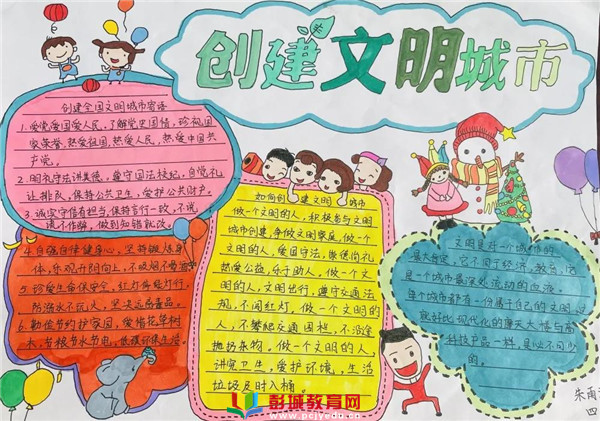 创建文明城市
创建全国文明城市寄语
1.爱党爱国爱人民,了解党史国情,珍视国
家荣誉,热爱祖国,热爱人民,热爱中国共
产党。
2.明礼守法讲美德,遵守国法校纪,自觉礼
让排队,保持公共卫生,爱护公共财产。
3.诚实守信有担当,保持言行一致,不说
谎不作弊,做到知错就改。
4.自强自律健身心,坚持锻炼身
体,乐观开朗向上,不吸烟不喝酒
5.珍爱生命保安全,红灯停绿灯行
防溺水不玩火,坚决远离毒品。
6.勤俭节约护家园,爱惜花草树
木,节粮节水节电,低碳环保生活。
如何创建文明城市
做一个文明的人,积极参与文明
城市创建,争做文明家庭,做一个
文明的人,爱国守法,崇德尚礼
热爱公益,乐于助人,做一个文
明的人,文明出行,遵守交通法
规,不闯红灯,做一个文明的
人,不攀越交通围栏,不沿途
抛扔杂物。做一个文明的人,
讲究卫生,爱护环境,生活
垃圾及时入桶。
文明是对一个城市的
最大肯定,它不同于经济,教台,它
是一个城市最深处流动的血液。
每个城市都有一份属于自己的文明
就好比现代化的摩天大楼与高
科技产品一样,是必不可少
的。
朱雨
四
彭城教育网
www.pcjyedu.com